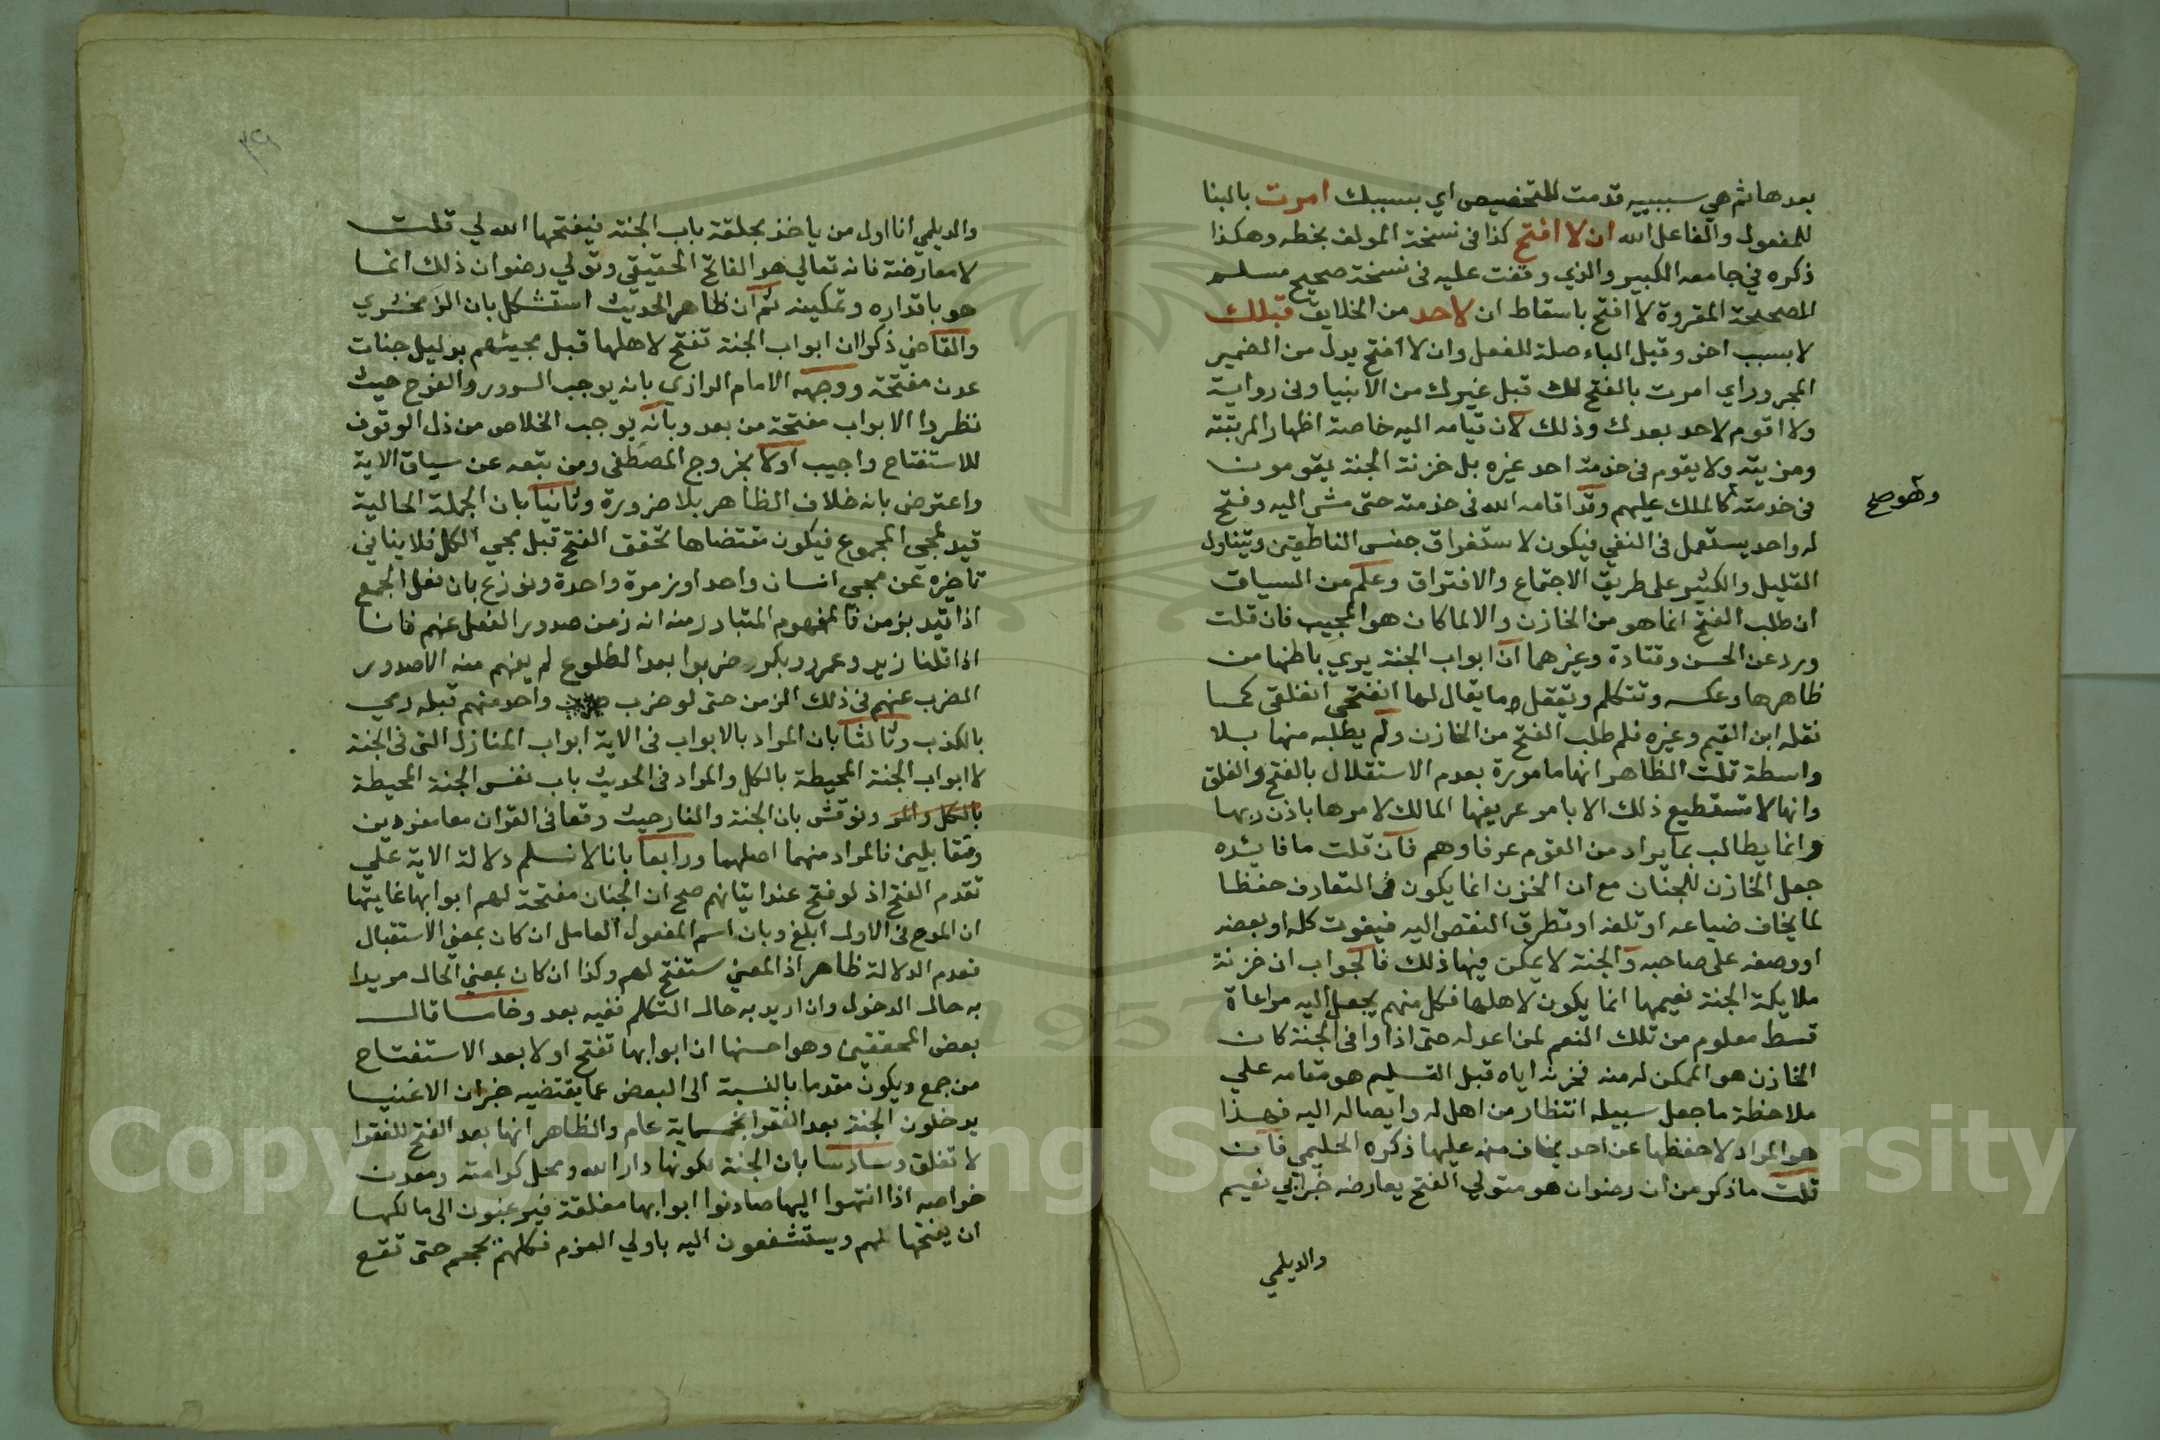 بعدها ثم هي سببيه قدمت للتخصيص اي بسببك امرت بالبنا
للمفعول والفاعل الله ان لا افتح كذا في نسخة المولف بخطه وهكذا
ذكره في جامعه الكبير والذي وقفت عليه في نسخة صحيح مسلم
الصحيحة المقروة لا افتح باسقاط ان لاحد من الخلايق قبلك
لا بسبب اخر وقيل الباء صلة للفعل وان لا افتح بدل من الضمير
المجرور اي امرت بالفتح لك قبل غيرك من الانبيا وفي رواية
ولا اقوم لاحد بعدك وذلك لان قيامه اليه خاصة اظهار المرتبته
ومزيته ولا يقوم في خدمة احد غيره بل خزنة الجنة يقومون
في خدمته وهو كالملك عليهم وقد اقامه الله في خدمته حتى مشى اليه وفتح
له واحد يستعمل في النفي فيكون لاستغراق جنس الناطقين ويتناول
القليل والكثير على طريق الاجتماع والافتراق وعلم من السياق
ان طلب الفتح انما هو من الخازن والا لما كان هو المجيب فان قلت
ورد عن الحسن وقتادة وغيرهما ان ابواب الجنة يري باطنها من
ظاهرها وعكسه وتتكلم وتعقل وما يقال لها انفتحي انغلقي كما
نقله ابن القيم وغيره فلم طلب الفتح من الخازن ولم يطلبه منها بلا
واسطة قلت الظاهر انها مامورة بعدم الاستقلال بالفتح والغلق
وانها لا تستطيع ذلك الا بامر عريفها المالك لامرها باذن ربها
وانما يطالب بما يراد من القوم عرفاوهم فان قلت ما فايده
جعل الخازن للجنان مع ان الخزن انما يكون في التعارف حفظا
لما يخاف ضياعه او تلفه او تطرق النقص اليه فيفوت كله او بعضه
او وصفه على صاحبه والجنة لا يمكن فيها ذلك فالجواب ان خزنة
ملايكة الجنة نعيمها انما يكون لاهلها فكل منهم يجعل اليه مراعاة
قسط معلوم من تلك النعم لمن اعد له حتى اذا وافى الجنة كان
الخازن هو الممكن له منه فخزنه اياه قبل التسليم هو مقامه علي
ملاحظة ما جعل سبيله انتظار من اهل له وايصاله اليه فهذا
هو المراد لا حفظها عن احد يخاف منه عليها ذكره الحليمي فان
قلت ما ذكر من ان رضوان هو متولي الفتح يعارضه خبر ابي نعيم
وهو صح
والديلمي
والديلمي انا اول من ياخذ بحلقة باب الجنة فيفتحها الله لي قلت
لا معارضة فانه تعالي هو الفاتح الحقيقي وتولي رضوان ذلك انما
هو باقداره وتمكينه ثم ان ظاهر الحديث استشكل بان الزمخشري
والقاضي ذكرا ان ابواب الجنة تفتح لاهلها قبل مجيئهم بدليل جنات
عدن مفتحة ووجهه الامام الرازي بانه يوجب السرور والفرح حيث
نظروا الابواب مفتحة من بعد وبانه يوجب الخلاص من ذل الوقوف
للاستفتاح واجيب اولا بخروج المصطفى ومن تبعه عن سياق الاية
واعترض بانه خلاف الظاهر بلا ضرورة وثانيا بان الجملة الحالية
قيد لمجي المجموع فيكون مقتضاها تحقق الفتح قبل مجي الكل فلا ينافي
تاخيره عن مجي انسان واحد او زمرة واحدة ونوزع بان فعل الجمع
اذا قيد بزمن فالمفهوم المتبادر منه انه زمن صدور الفعل عنهم فانا
اذا قلنا زيد وعمرو وبكر ضربوا بعد الطلوع لم يفهم منه الا صدور
الضرب عنهم في ذلك الزمن حتى لو ضرب واحد منهم قبله رمي
بالكذب وثالثا بان المراد بالابواب في الاية ابواب المنازل التي في الجنة
لا ابواب الجنة المحيطة بالكل والمراد في الحديث باب نفس الجنة المحيطة
بالكل والمر ونوقش بان الجنة والنار حيث وقعا في القران معا مفردين
ومتقابلين فالمراد منهما اصلهما ورابعا بانا لا نسلم دلالة الاية علي
تقدم الفتح اذ لو فتح عند اتيانهم صح ان الجنان مفتحة لهم ابوابها غايتها
ان المدح في الاول ابلغ وبان اسم المفعول العامل ان كان بمعني الاستقبال
فعدم الدلالة ظاهر اذ المعني ستفتح لهم وكذا ان كان بمعني الحال مويدا
به حال الدخول وان اريد به حال التكلم ففيه بعد وخامسا قال
بعض المحققين وهو احسنها ان ابوابها تفتح اولا بعد الاستفتاح
من جمع ويكون مقدما بالنسبة الى البعض عما يقتضيه خبر ان الاغنيا
يدخلون الجنة بعد الفقرا بخمسماية عام والظاهر انها بعد الفتح للفقرا
لا تغلق وسادسا بان الجنة لكونها دار الله ومحل كرامته ومعدن
خواصه اذا انتهوا اليها صادفوا ابوابها مغلقة فيرغبون الى مالكها
ان يفتحها لهم ويستشفعون اليه باولي العزم فكلهم يحجم حتى تقع
Copyright © King Saud University
1957